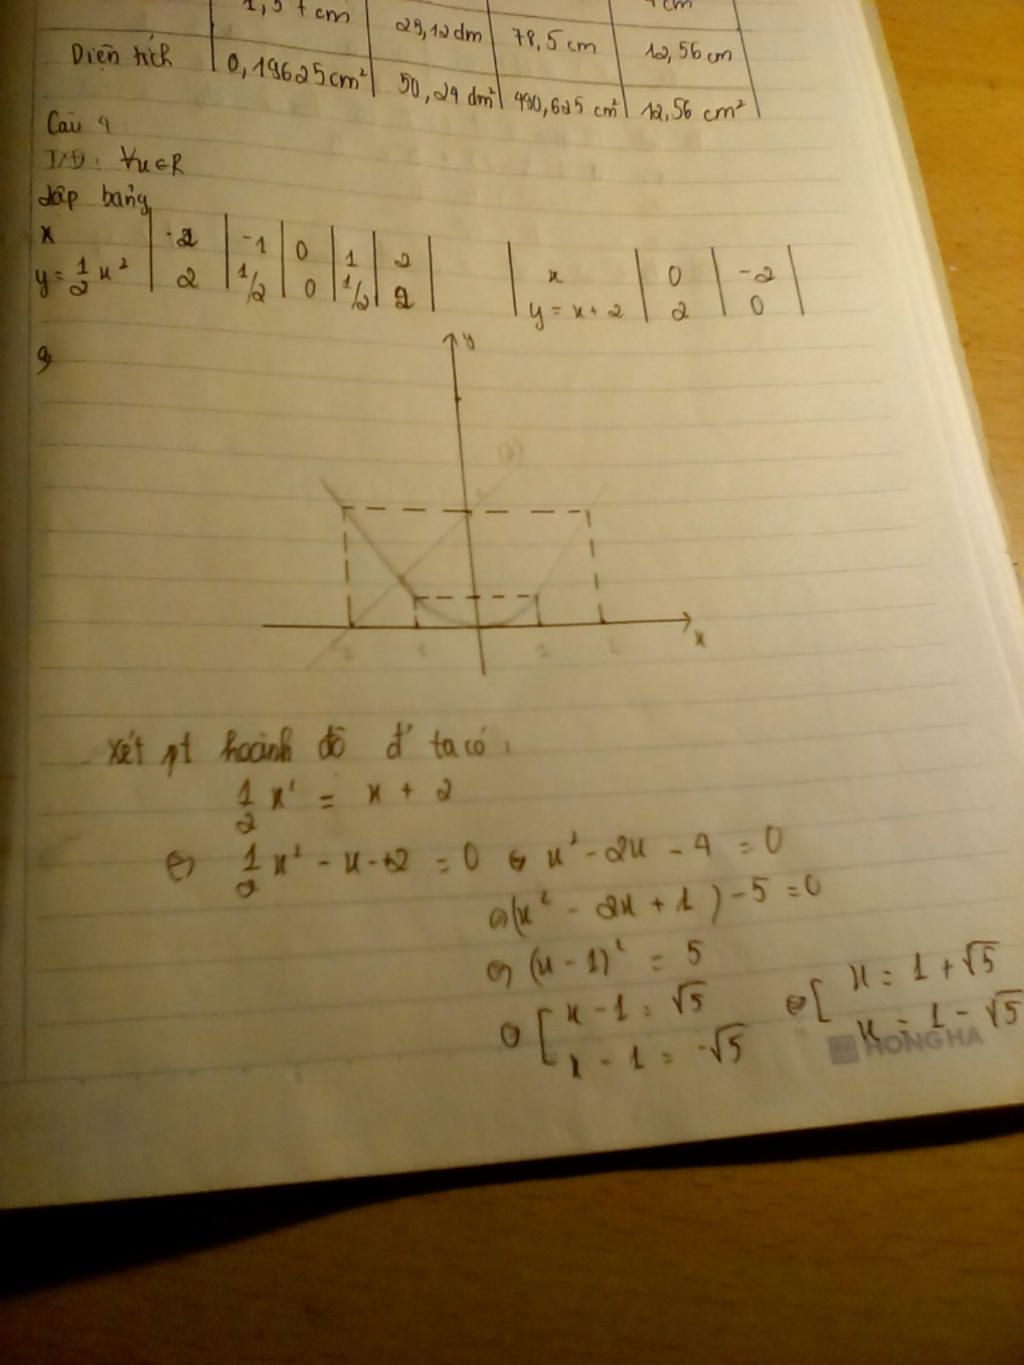 1,57 cm 25,12 dm 78,5 cm 12,56 cm
Diện tích 0,19625 cm² 50,24 dm² 490,625 cm² 12,56 cm²
Câu 4
TXĐ: ∀x∈R
lập bảng
x -2 -1 0 1 2
y = 1/2 x² 2 1/2 0 1/2 2
x 0 -2
y = x + 2 2 0
y
(d)
-2 1 2
x
Xét pt hoành độ đ' ta có:
1/2 x² = x + 2
⇔ 1/2 x² - x - 2 = 0 ⇔ x² - 2x - 4 = 0
⇔ (x² - 2x + 1) - 5 = 0
⇔ (x - 1)² = 5
⇔ [ x - 1 = √5 ⇔ [ x = 1 + √5
x - 1 = -√5 x = 1 - √5
HONG HA